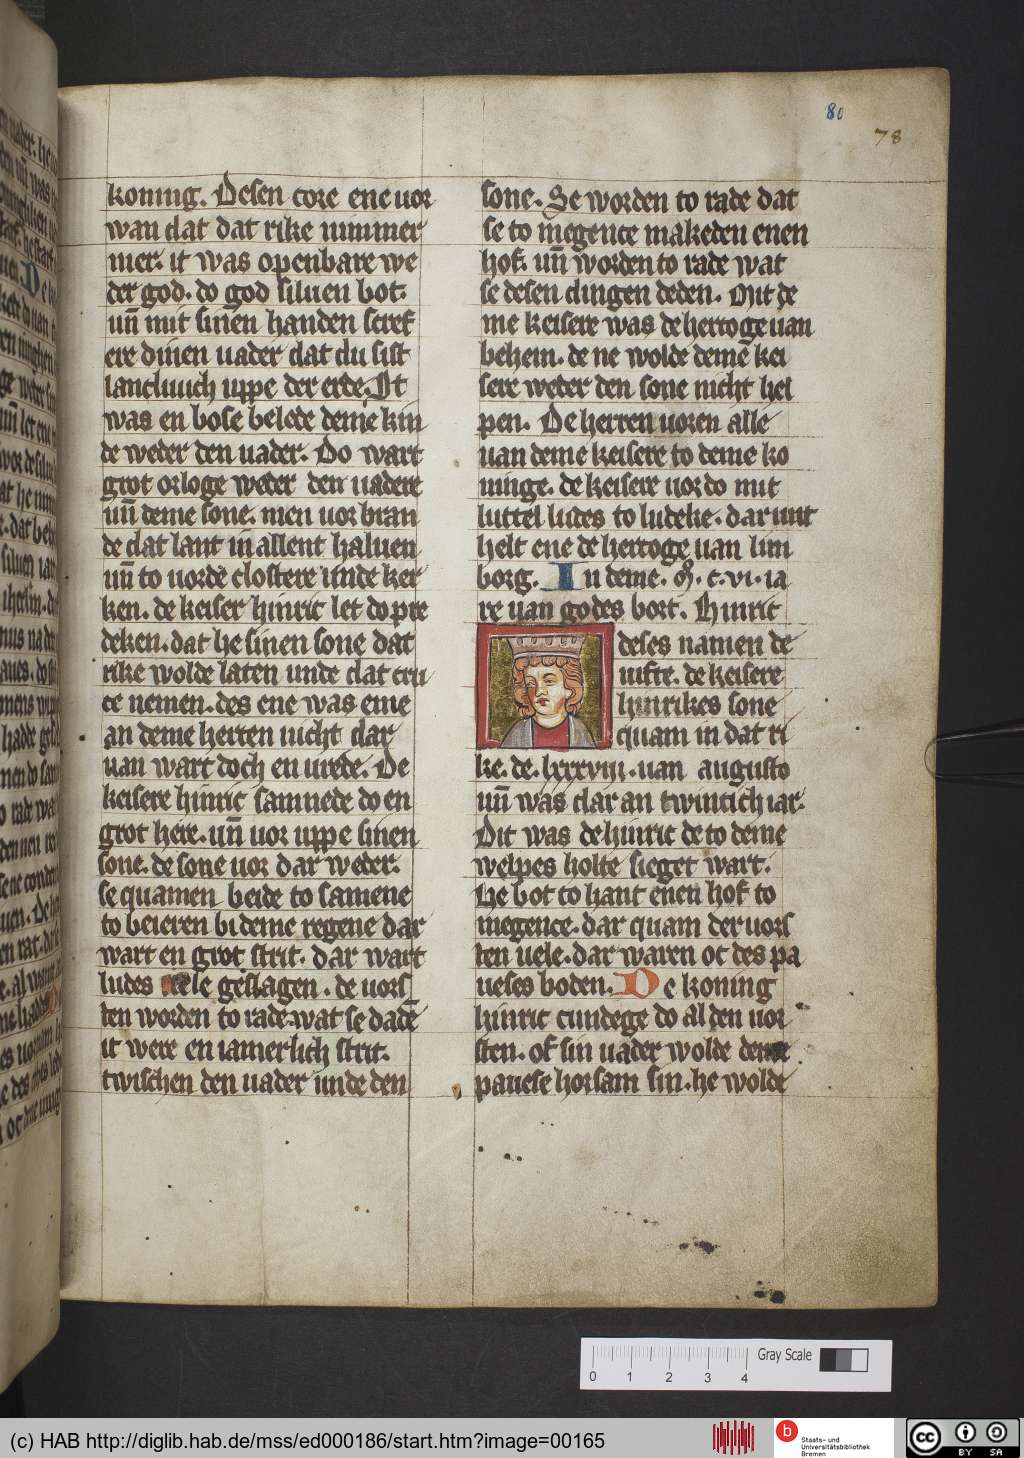 80
78
koning. Desen core ene uor
wan dat dat rike nimmer
mer. it was openbare we
der god. do god siluen bot.
un̄ mit sinen handen scref
ere dinen uader dat du sist
lancliuich uppe der erde. It
was en bose belede deme kin
de weder den uader. Do wart
grot orloge weder den uadere
un̄ deme sone. men uor bran
de dat lant in allent haluen
un̄ to uorde clostere unde ker
ken. de keiser hinric let do pre
deken. dat he sinen sone dat
rike wolde laten unde dat cru
ce nemen. des ene was eme
an deme herren nicht dar
uan wart doch en urede. De
keisere hinric samnede do en
grot here. un̄ uor uppe sinen
sone. de sone uor dar weder.
se quamen beide to samene
to beieren bi deme regene dar
wart en grot strit. dar wart
ludes uele geslagen. de uors
ten worden to rade. wat se dadē
it were en iamerlich strit.
twischen den uader unde den
sone. Se worden to rade dat
se to megence makeden enen
hof. un̄ worden to rade wat
se desen dingen deden. Mit de
me keisere was de hertoge uan
behem. de ne wolde demē kei
sere weder den sone nicht hel
pen. De herren uoren alle
uan deme keisere to deme ko
ninge. de keisere uor do mit
luttel ludes to ludeke. dar unt
helt ene de hertoge uan lim
borg. In deme. M̊. c. vi. ia
re uan godes bort. Hinric
deses namen de
uifte. de keisere
hinrikes sone
quam in dat ri
ke. de. lxxxviii. uan augusto
un̄ was dar an twintich iar.
Dit was de hinric de to deme
welpes holte sieget wart.
He bot to hant enen hof to
megence. dar quam der uors
ten uele. dar waren oc des pa
ueses boden. De koning
hinric cundege do al den uor
sten. of sin uader wolde deme
pauese horsam sin. he wolde
Gray Scale
0 1 2 3 4
(c) HAB http://diglib.hab.de/mss/ed000186/start.htm?image=00165
b
Staats- und
Universitätsbibliothek
Bremen
cc
BY SA